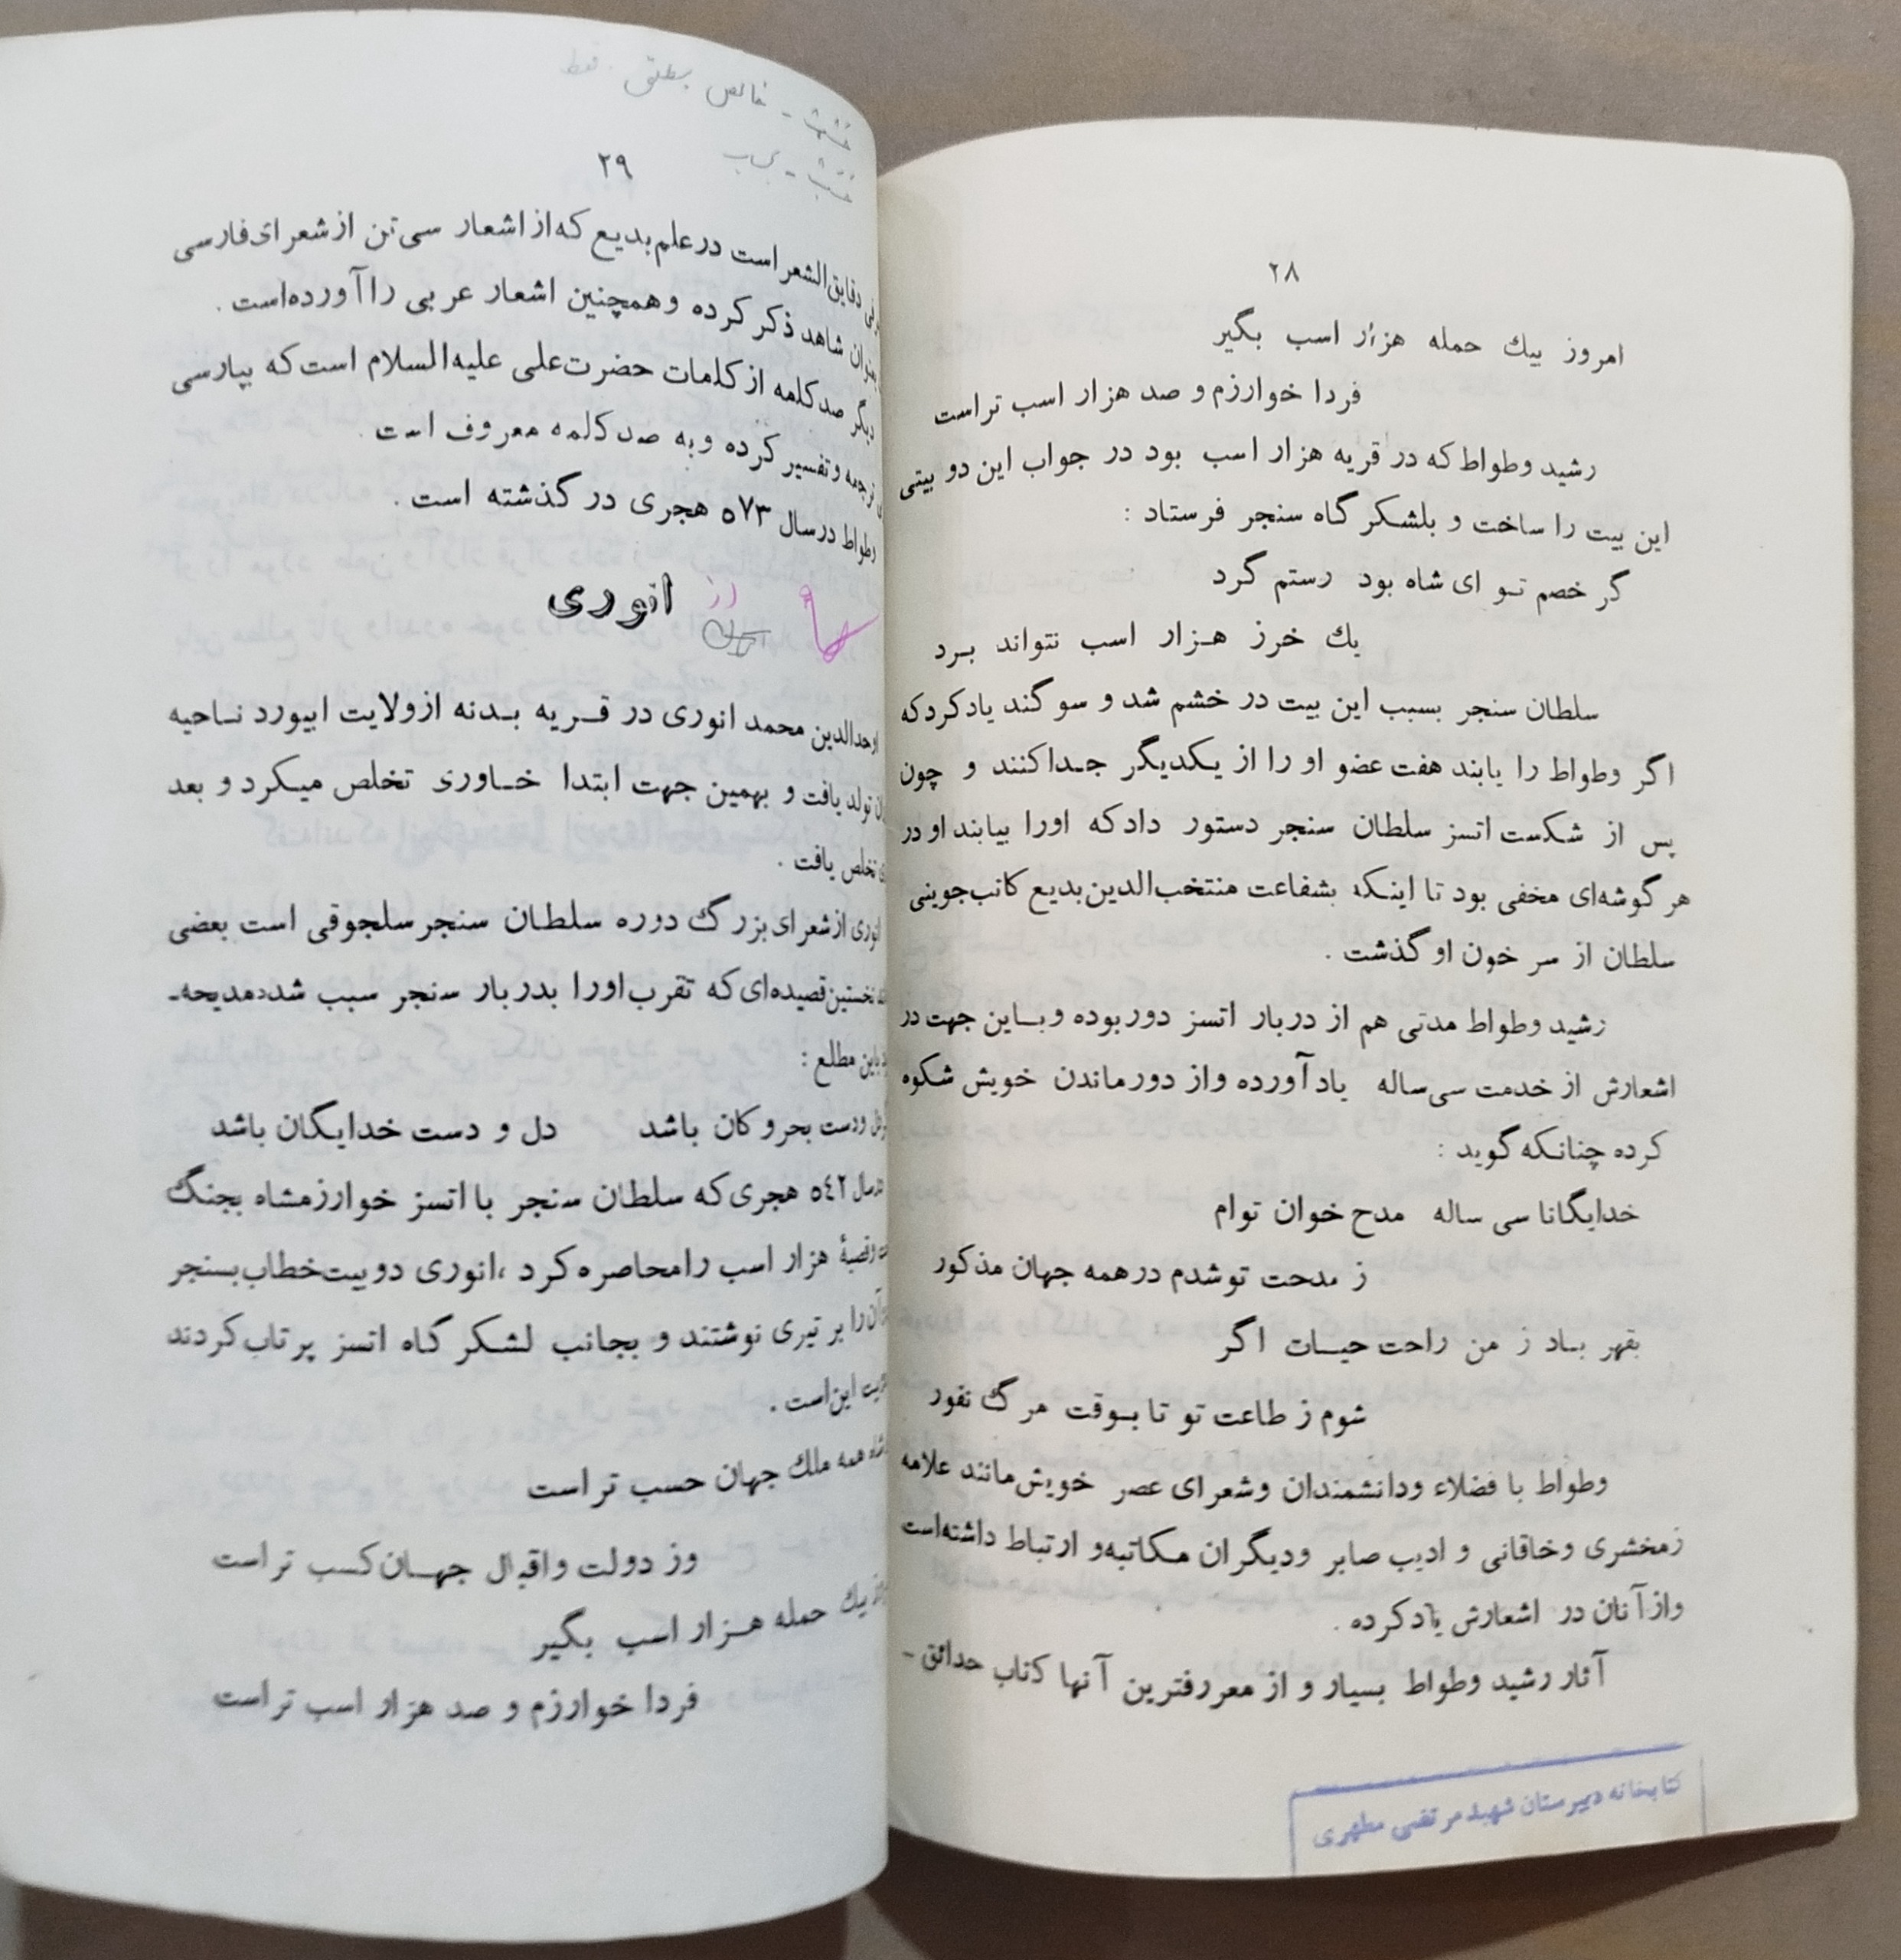 ۲۸
امروز بیك حمله هزار اسب بگیر
فردا خوارزم و صد هزار اسب تراست
رشید وطواط که در قریه هزار اسب بود در جواب این دو بیتی
این بیت را ساخت و بلشکر گاه سنجر فرستاد :
گر خصم تو ای شاه بود رستم گرد
یك خرز هزار اسب نتواند برد
سلطان سنجر بسبب این بیت در خشم شد و سوگند یاد کرد که
اگر وطواط را یابند هفت عضو او را از یکدیگر جدا کنند و چون
پس از شکست اتسز سلطان سنجر دستور داد که اورا بیابند او در
هر گوشه‌ای مخفی بود تا اینکه بشفاعت منتخب‌الدین بدیع کاتب جوینی
سلطان از سر خون او گذشت .
رشید وطواط مدتی هم از دربار اتسز دور بوده و باین جهت در
اشعارش از خدمت سی‌ساله یاد آورده و از دور ماندن خویش شکوه
کرده چنانکه گوید :
خدایگانا سی ساله مدح خوان توام
ز مدحت تو شدم در همه جهان مذکور
بقهر باد ز من راحت حیات اگر
شوم ز طاعت تو تا بوقت مرگ نفور
وطواط با فضلاء و دانشمندان و شعرای عصر خویش مانند علامه
زمخشری و خاقانی و ادیب صابر و دیگران مکاتبه و ارتباط داشته‌است
و از آنان در اشعارش یاد کرده .
آثار رشید وطواط بسیار و از معروفترین آنها کتاب حدائق ـ
کتابخانه دبیرستان شهید مرتضی مطهری
خالص
فقط
۲۹
دقایق‌الشعر است در علم بدیع که از اشعار سی تن از شعرای فارسی
بعنوان شاهد ذکر کرده و همچنین اشعار عربی را آورده‌است .
دیگر صد کلمه از کلمات حضرت علی علیه‌السلام است که بپارسی
ترجمه و تفسیر کرده و به صد کلمه معروف است .
وطواط در سال ۵۷۳ هجری در گذشته است .
انوری
اوحدالدین محمد انوری در قریه بدنه از ولایت ابیورد ناحیه
تولد یافت و بهمین جهت ابتدا خاوری تخلص میکرد و بعد
تخلص یافت .
انوری از شعرای بزرگ دوره سلطان سنجر سلجوقی است بعضی
نخستین قصیده‌ای که تقرب اورا بدربار سنجر سبب شد مدیحه‌ـ
باین مطلع :
ودست بحر و کان باشد دل و دست خدایگان باشد
سال ۵٤۲ هجری که سلطان سنجر با اتسز خوارزمشاه بجنگ
وقصبهٔ هزار اسب را محاصره کرد ، انوری دو بیت خطاب بسنجر
آن را بر تیری نوشتند و بجانب لشکر گاه اتسز پرتاب کردند
این است .
شاه همه ملك جهان حسب تراست
وز دولت و اقبال جهان کسب تراست
بیك حمله هزار اسب بگیر
فردا خوارزم و صد هزار اسب تراست